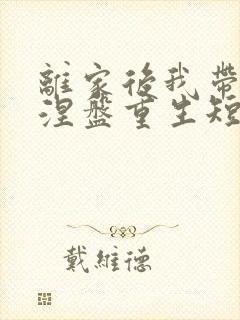 離家後我帶
涅盤重生短
戴維德